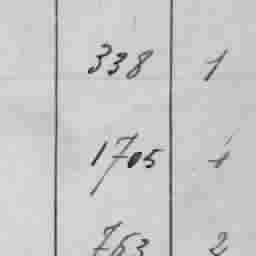 338 1
1705 4
763 2